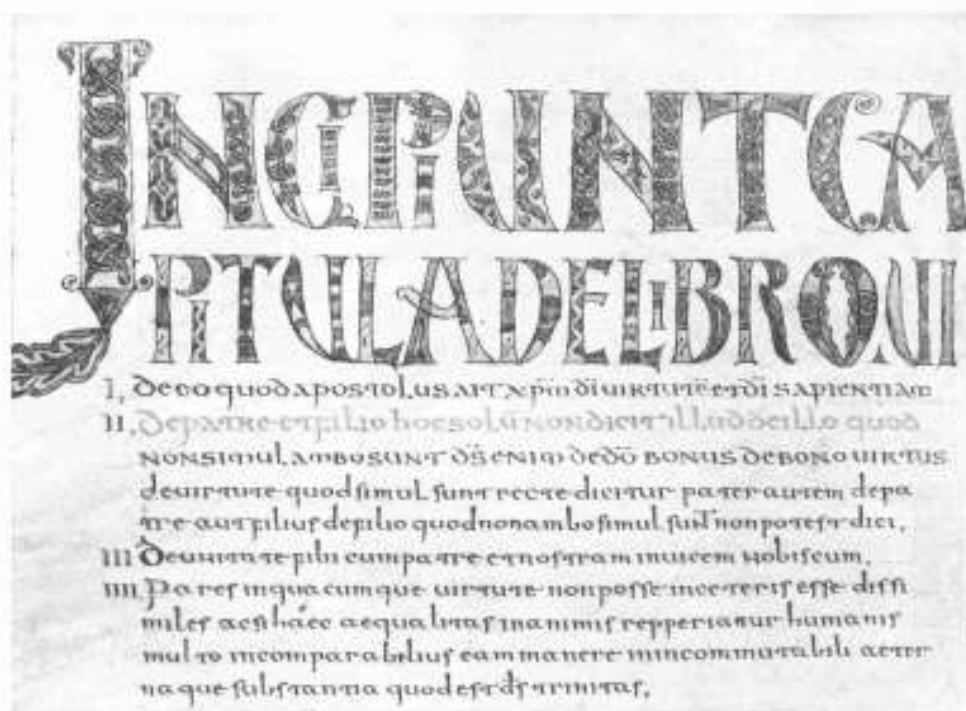 INCIPIUNT CA
PITULA DE LIBRO VI
I, De eo quod apostolus ait xp̄m dī uirtutē et dī sapientiam
II, De patre et filio hoc solū non dicit illud de illo quod
non simul ambo sunt d̄s enim de dō bonus de bono uirtus
de uirtute quod simul sunt recte dicitur pater autem de pa
tre aut filius de filio quod non ambo simul sunt non potest dici,
III De unitate filii cum patre et nostram inuicem nobiscum,
IIII, Pares in quacumque uirtute non posse in ceteris esse dissi
miles ac si haec aequalitas in animis repperiatur humanis
multo incomparabilius eam manere in incommutabili aeter
naque substantia quod est d̄s trinitas,